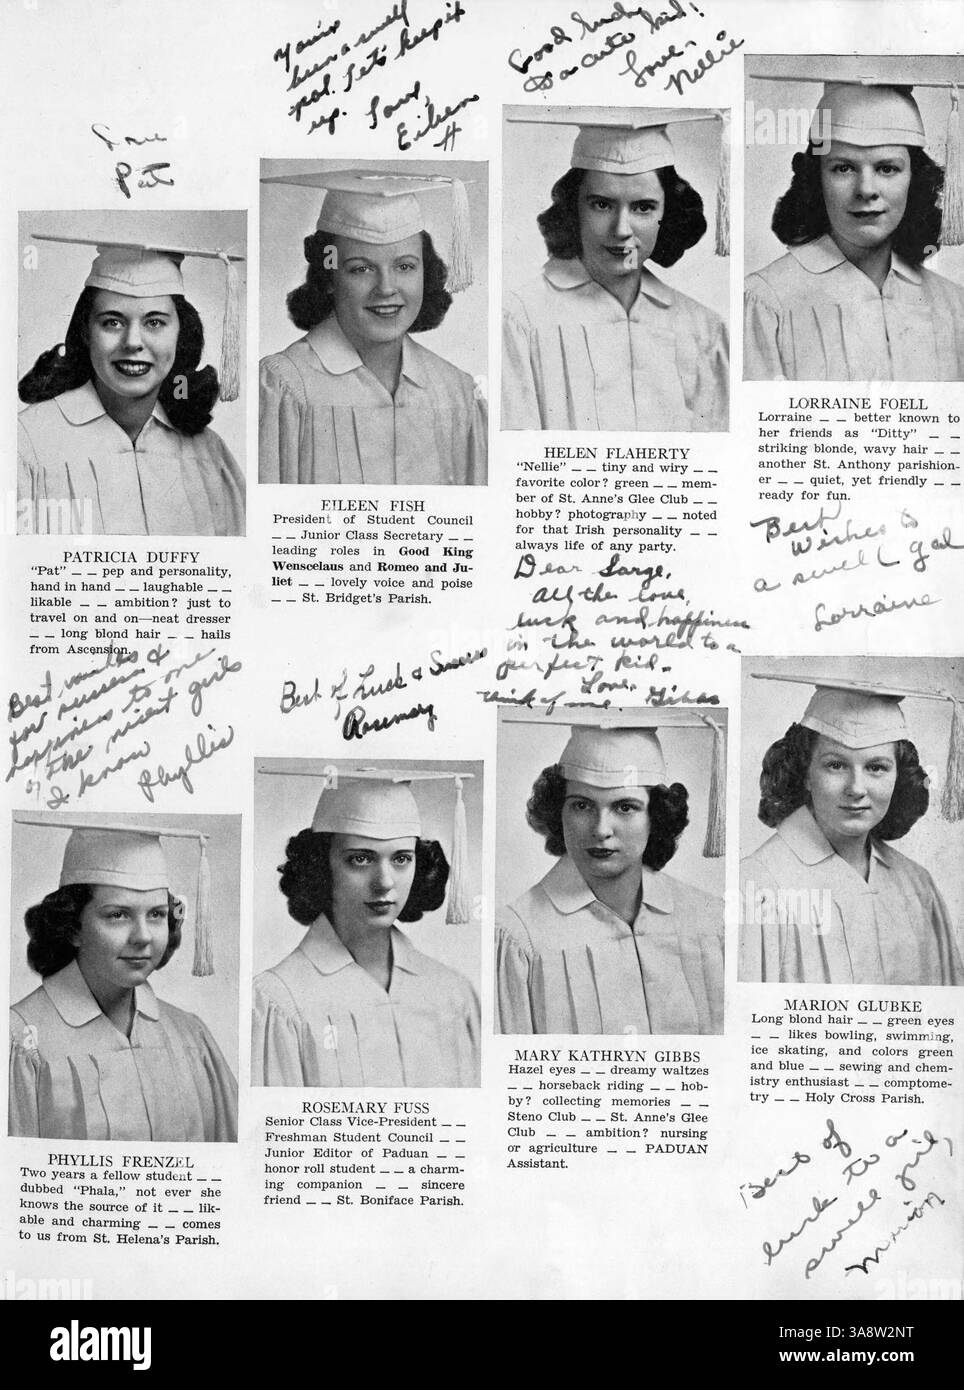 You've
been a swell
pal. Let's keep it
up. Love,
Eileen
Good luck
to a cute kid!
Love,
Nellie
Love
Pat
PATRICIA DUFFY
"Pat" _ _ pep and personality,
hand in hand _ _ laughable _ _
likable _ _ ambition? just to
travel on and on—neat dresser
_ _ long blond hair _ _ hails
from Ascension.
EILEEN FISH
President of Student Council
_ _ Junior Class Secretary _ _
leading roles in Good King
Wenscelaus and Romeo and Ju-
liet _ _ lovely voice and poise
_ _ St. Bridget's Parish.
HELEN FLAHERTY
"Nellie" _ _ tiny and wiry _ _
favorite color? green _ _ mem-
ber of St. Anne's Glee Club _ _
hobby? photography _ _ noted
for that Irish personality _ _
always life of any party.
LORRAINE FOELL
Lorraine _ _ better known to
her friends as "Ditty" _ _
striking blonde, wavy hair _ _
another St. Anthony parishion-
er _ _ quiet, yet friendly _ _
ready for fun.
Best wishes
for success &
happiness to one
of the nicest girls
I know
Phyllis
Best of Luck & Success
Rosemary
Dear Sarge,
All the love,
luck and happiness
in the world to a
perfect kid.
Love,
think of me. Gibbs
Best
Wishes to
a swell gal
Lorraine
PHYLLIS FRENZEL
Two years a fellow student _ _
dubbed "Phala," not ever she
knows the source of it _ _ lik-
able and charming _ _ comes
to us from St. Helena's Parish.
ROSEMARY FUSS
Senior Class Vice-President _ _
Freshman Student Council _ _
Junior Editor of Paduan _ _
honor roll student _ _ a charm-
ing companion _ _ sincere
friend _ _ St. Boniface Parish.
MARY KATHRYN GIBBS
Hazel eyes _ _ dreamy waltzes
_ _ horseback riding _ _ hob-
by? collecting memories _ _
Steno Club _ _ St. Anne's Glee
Club _ _ ambition? nursing
or agriculture _ _ PADUAN
Assistant.
MARION GLUBKE
Long blond hair _ _ green eyes
_ _ likes bowling, swimming,
ice skating, and colors green
and blue _ _ sewing and chem-
istry enthusiast _ _ comptome-
try _ _ Holy Cross Parish.
Best of
luck to a
swell girl,
Marion
alamy
Image ID: 3A8W2NT
www.alamy.com